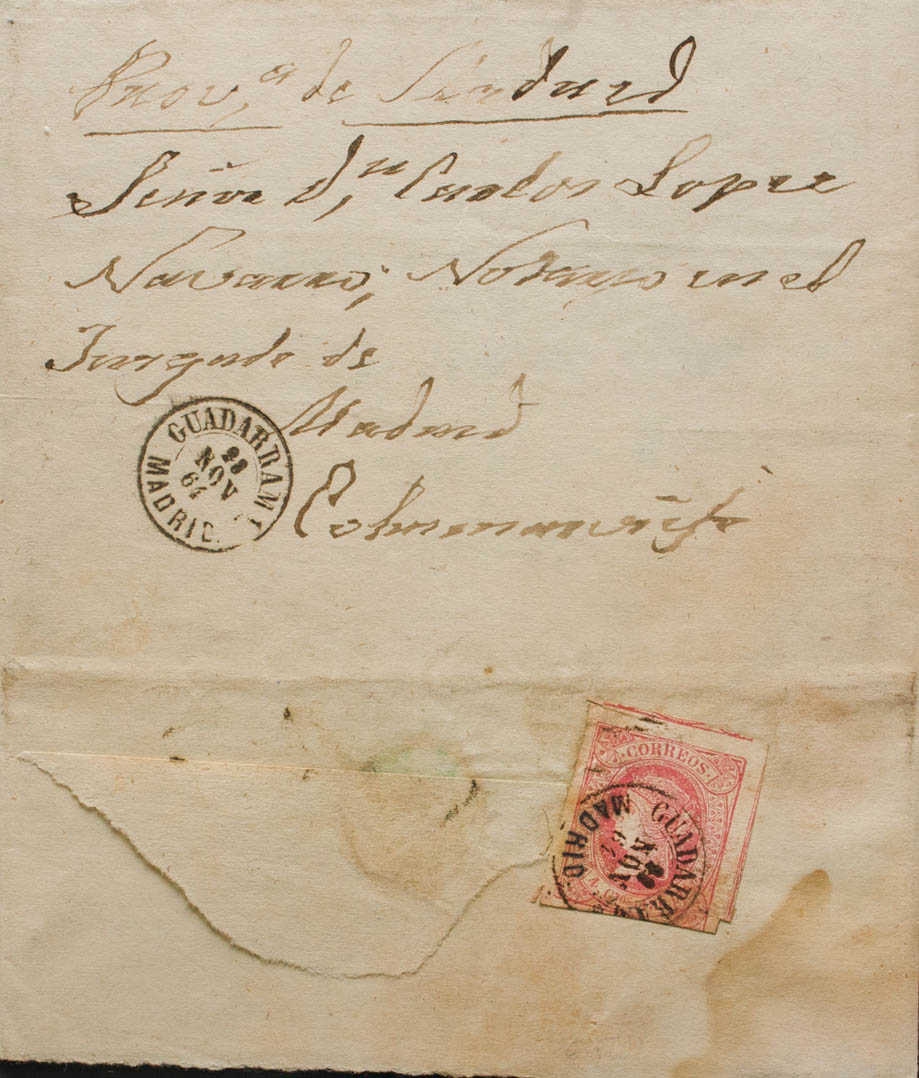 Prov,ª de Madrid
Señor dn, Carlos Lopez
Navarro, Notario en el
Juzgado de
Madrid
Colmenarviejo
GUADARRAMA
28
NOV
64
MADRID
CORREOS
GUADARRAMA
NOV
MADRID